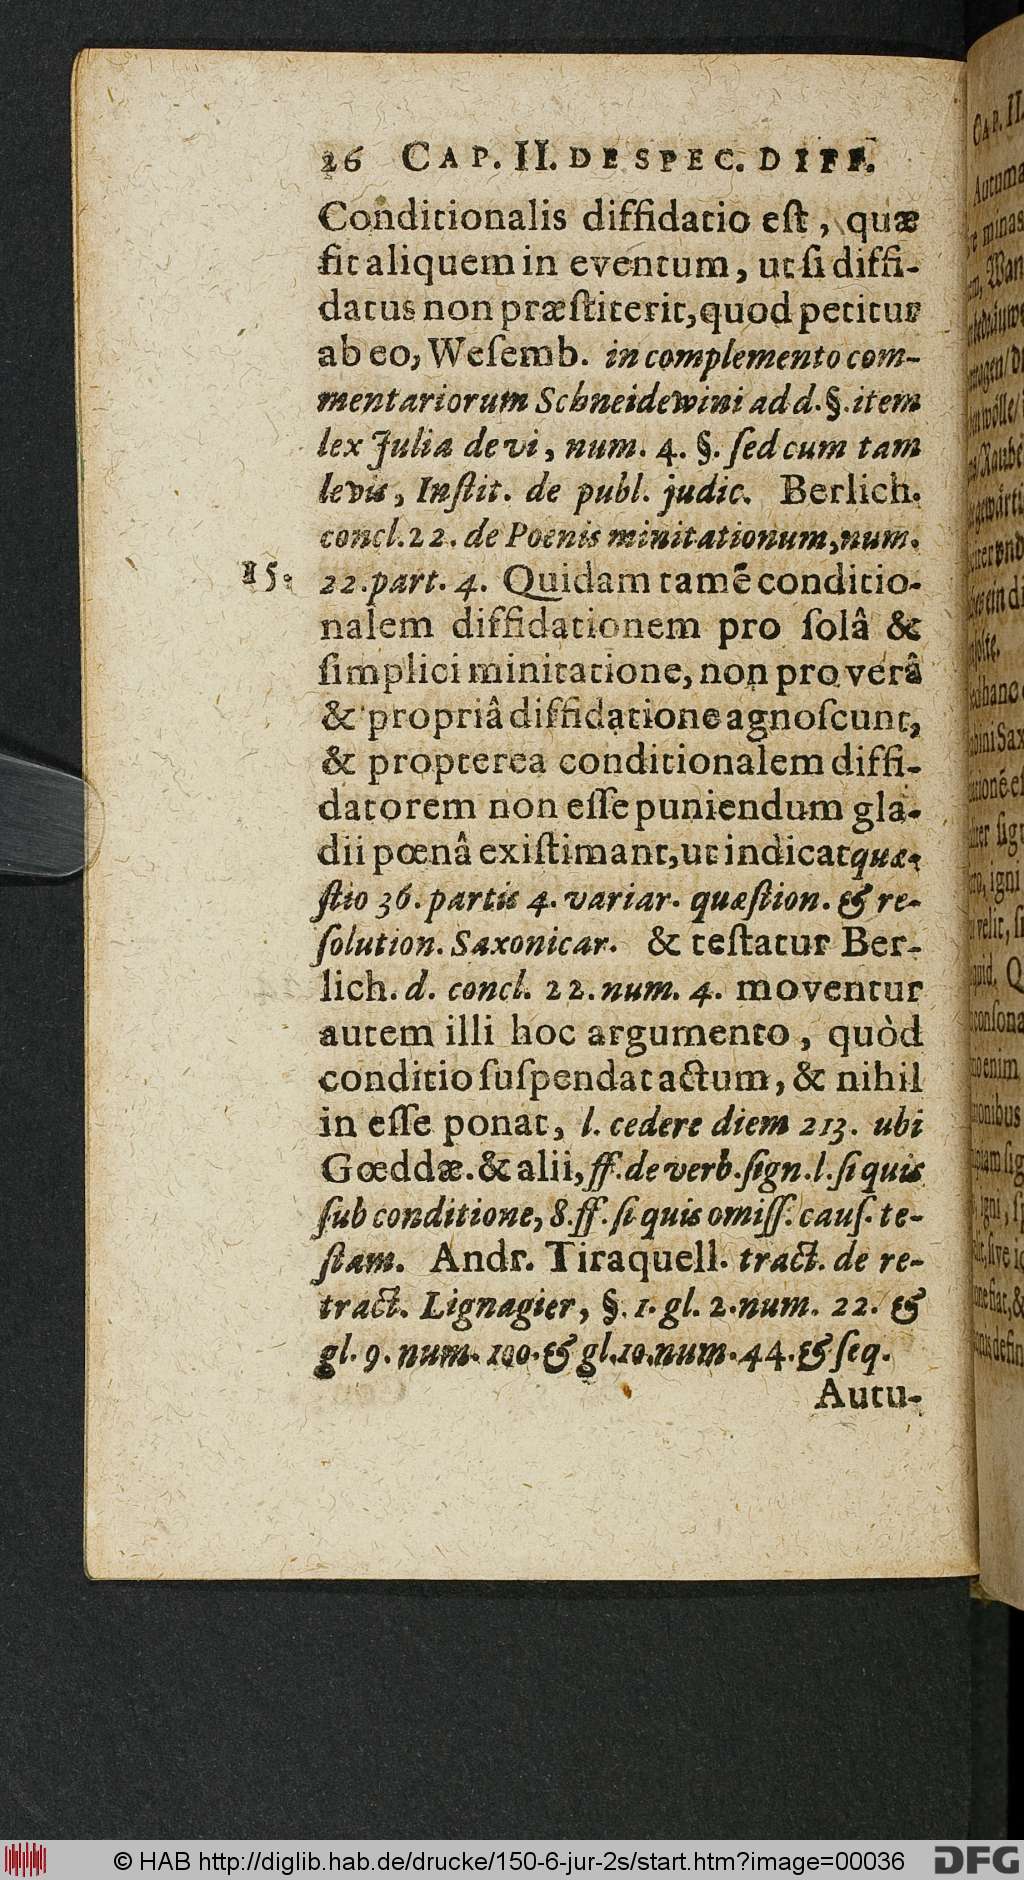 26 CAP. II. DE SPEC. DIFF.
Conditionalis diffidatio eſt, quæ
fit aliquem in eventum, ut ſi diffi-
datus non præſtiterit, quod petitur
ab eo, Weſemb. in complemento com-
mentariorum Schneidewini ad d. §. item
lex Julia de vi, num. 4. §. ſed cum tam
levis, Inſtit. de publ. judic. Berlich.
concl. 22. de Poenis minitationum, num.
15. 22. part. 4. Quidam tamē conditio-
nalem diffidationem pro ſolâ &
ſimplici minitatione, non pro verâ
& propriâ diffidatione agnoſcunt,
& propterea conditionalem diffi-
datorem non eſſe puniendum gla-
dii pœnâ exiſtimant, ut indicat quæ-
ſtio 36. partis 4. variar. quæſtion. & re-
ſolution. Saxonicar. & teſtatur Ber-
lich. d. concl. 22. num. 4. moventur
autem illi hoc argumento, quòd
conditio ſuſpendat actum, & nihil
in eſſe ponat, l. cedere diem 213. ubi
Gœddæ. & alii, ff. de verb. ſign. l. ſi quis
ſub conditione, 8. ff. ſi quis omiſſ. cauſ. te-
ſtam. Andr. Tiraquell. tract. de re-
tract. Lignagier, §. 1. gl. 2. num. 22. &
gl. 9. num. 100. & gl. 10. num. 44. & ſeq.
Autu-
CAP. II.
© HAB http://diglib.hab.de/drucke/150-6-jur-2s/start.htm?image=00036
DFG